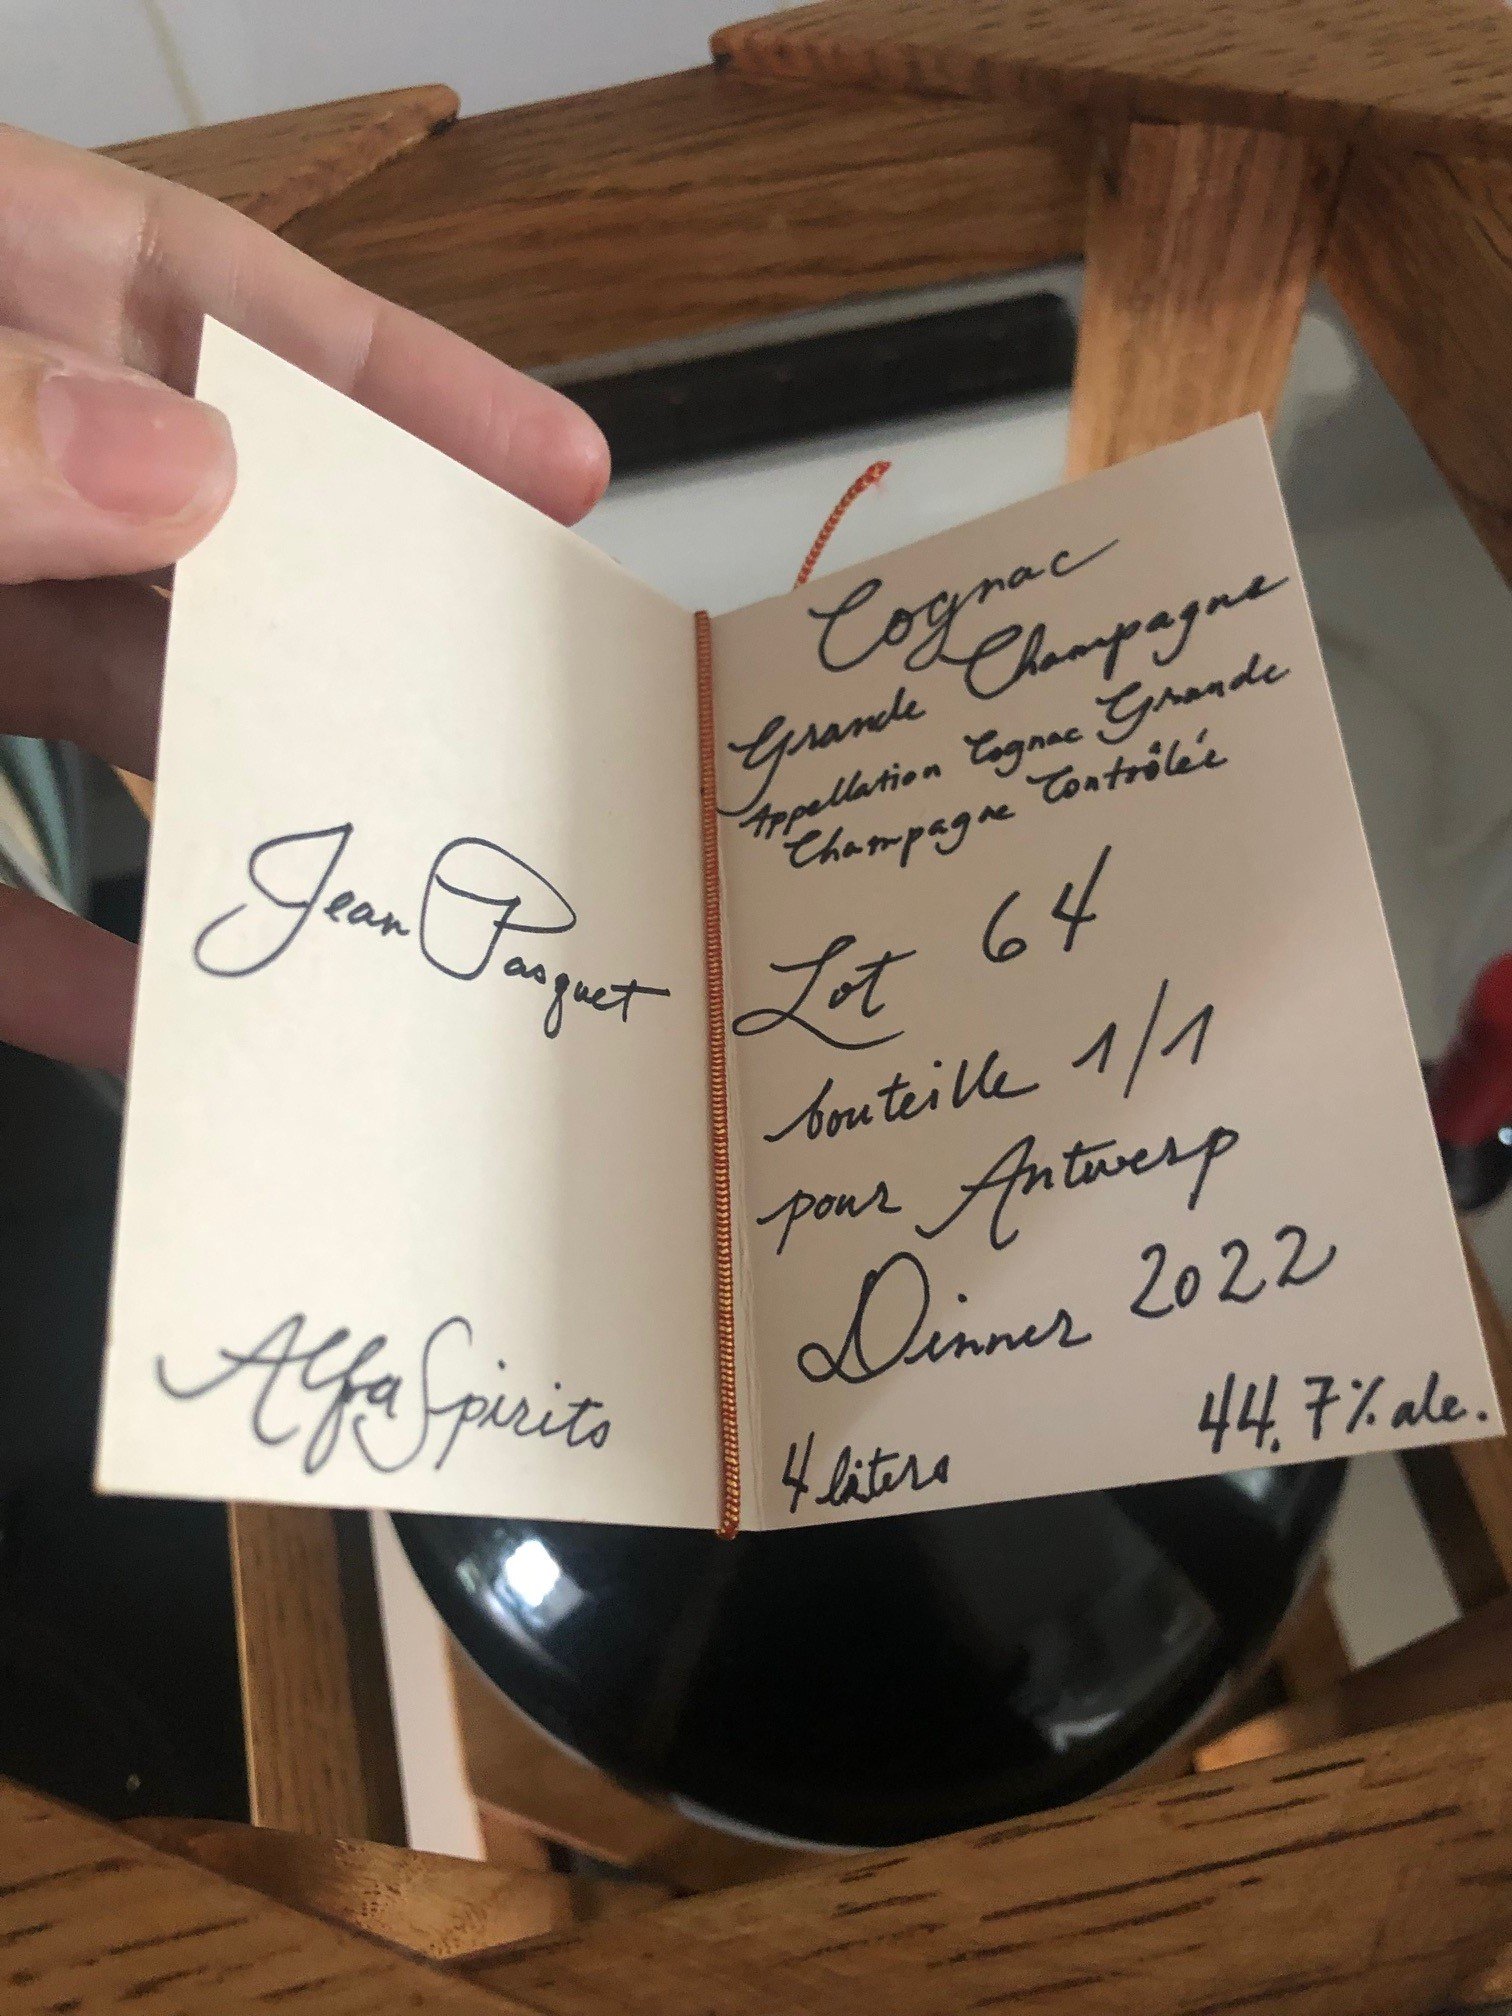 Jean Pasquet
Alfa Spirits
Cognac
Grande Champagne
Appellation Cognac Grande
Champagne Contrôlée
Lot 64
bouteille 1/1
pour Antwerp
Dinner 2022
4 liters 44.7% alc.